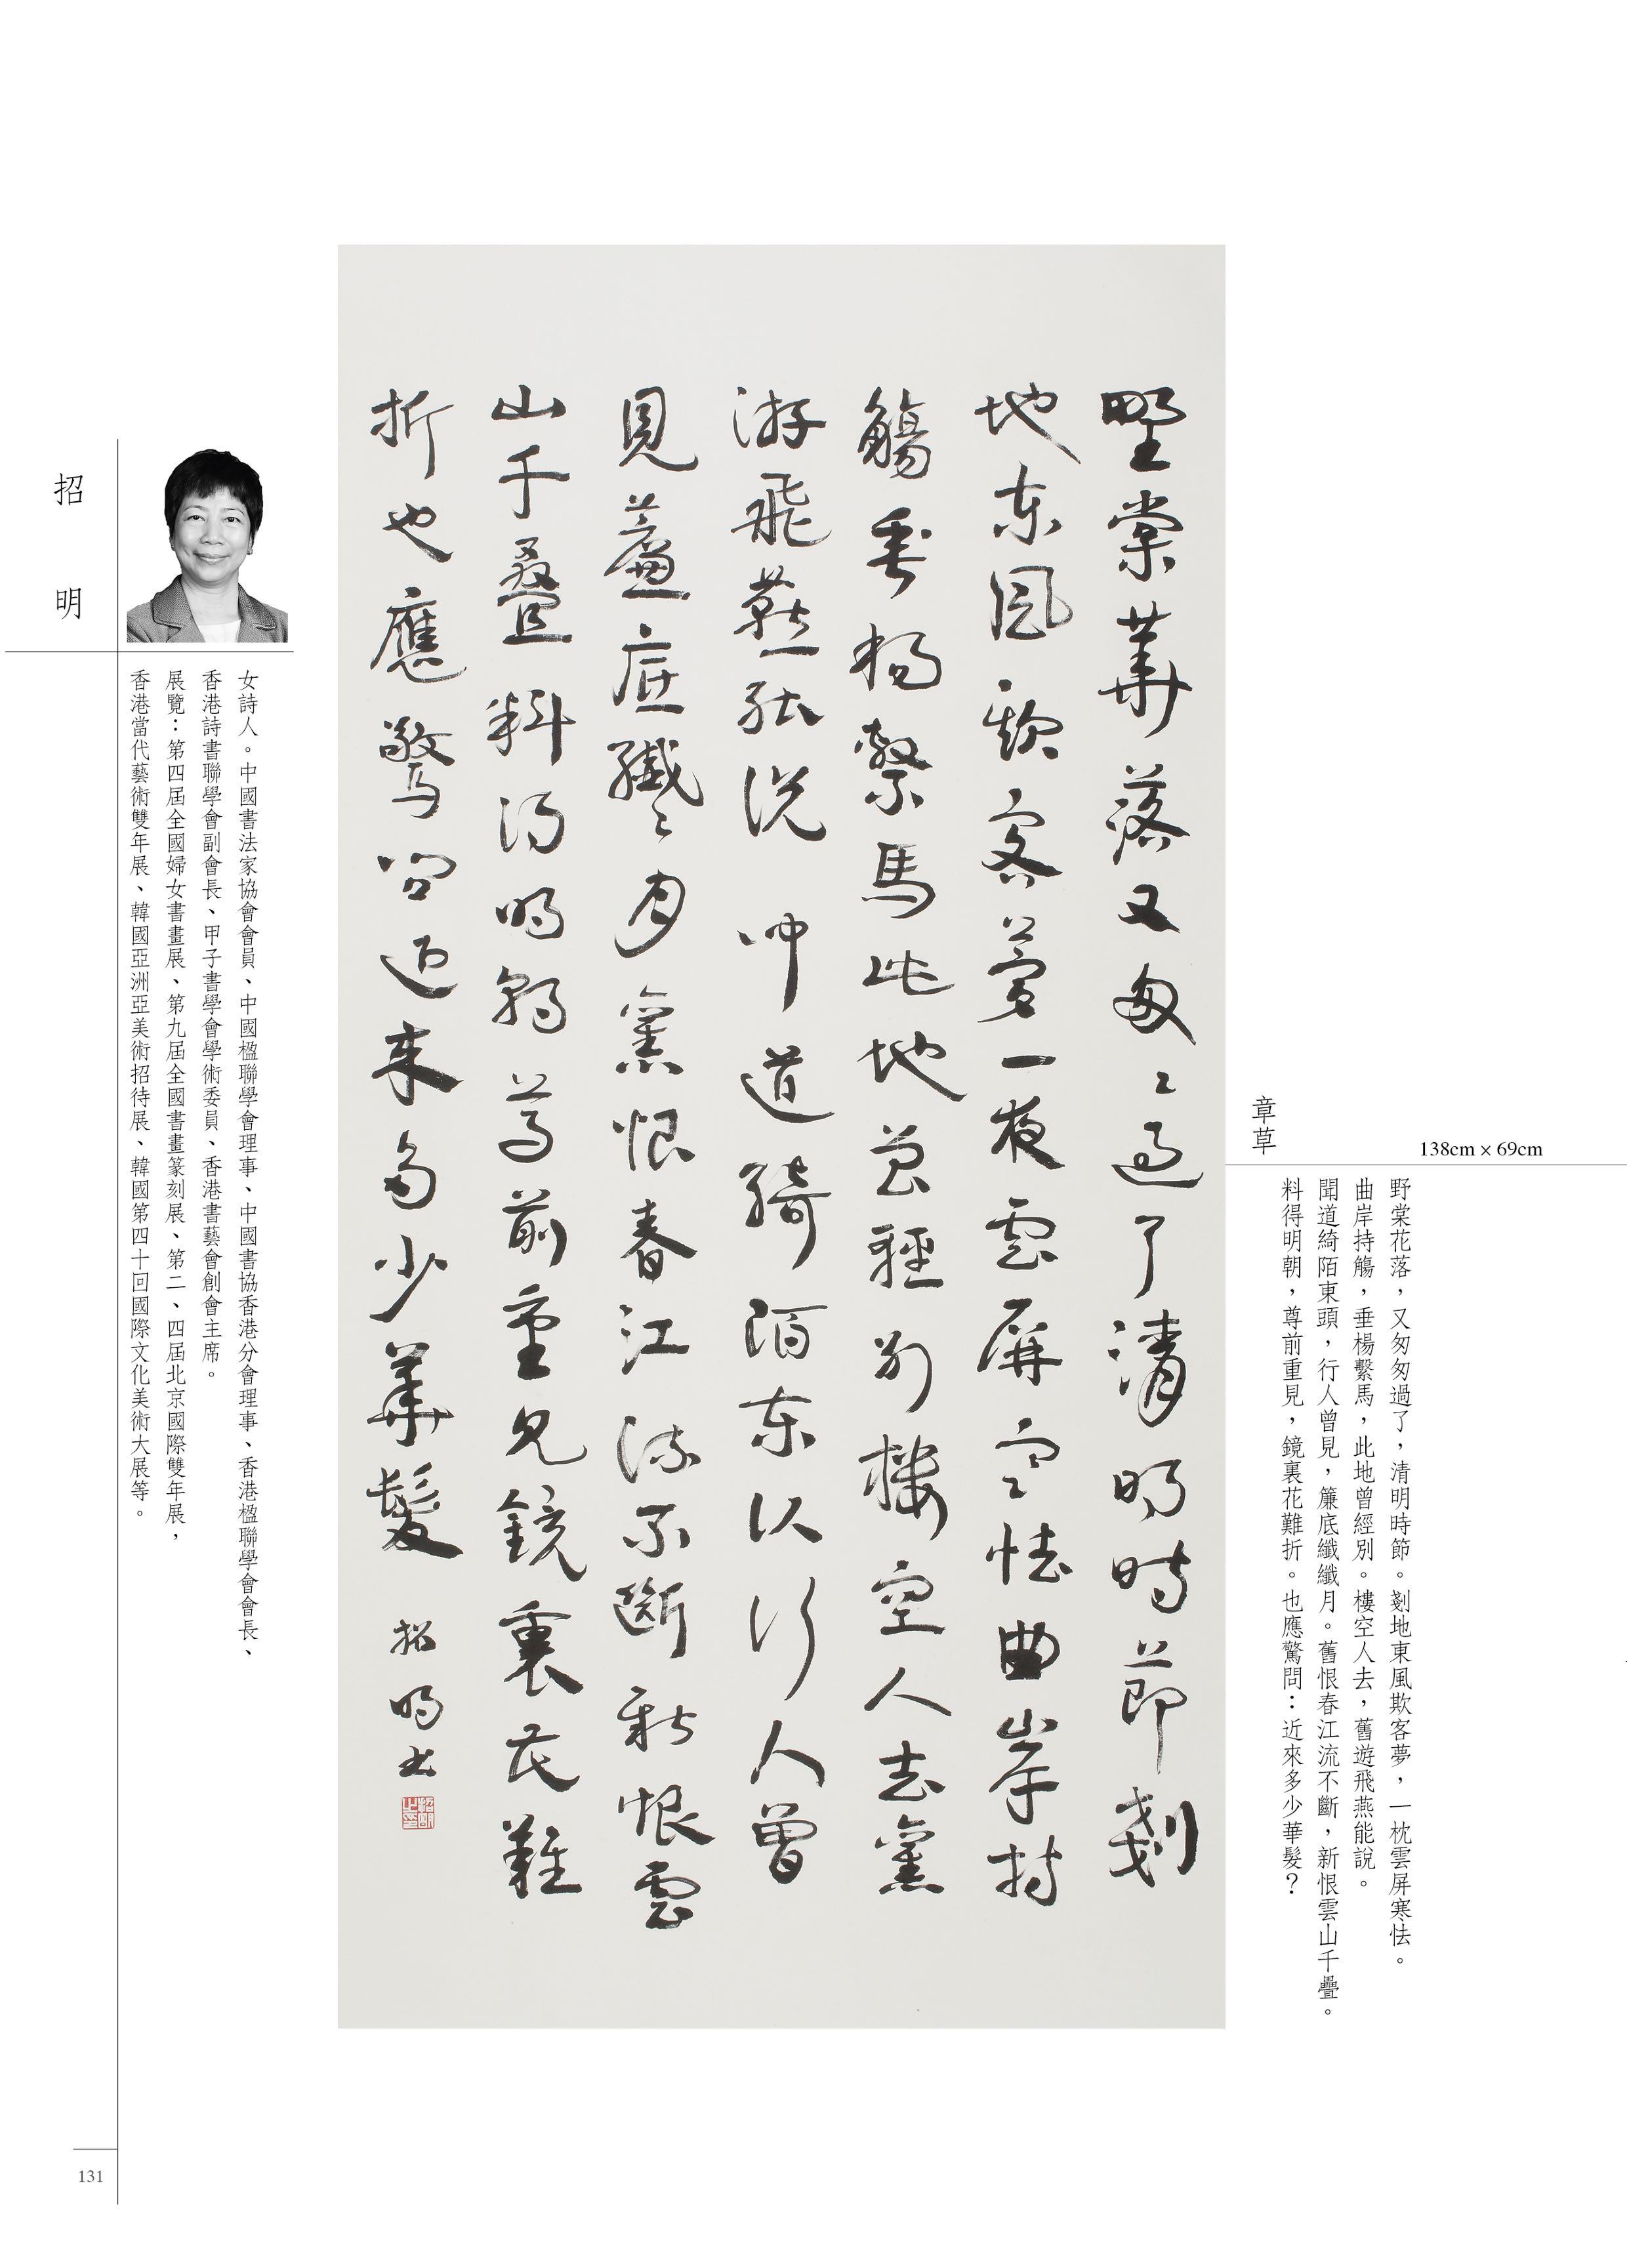 138cm × 69cm
野棠花落，又匆匆過了，清明時節。剗地東風欺客夢，一枕雲屏寒怯。
曲岸持觴，垂楊繫馬，此地曾經別。樓空人去，舊遊飛燕能說。
聞道綺陌東頭，行人曾見，簾底纖纖月。舊恨春江流不斷，新恨雲山千疊。
料得明朝，尊前重見，鏡裏花難折。也應驚問：近來多少華髮？
章草
野棠華落又匆〻過了清明時節剗
地東風欺客夢一夜雲屏寒怯曲岸持
觴垂楊繫馬此地曾輕別樓空人去舊
游飛燕能說聞道綺陌東頭行人曾
見簾底纖〻月舊恨春江流不斷新恨雲
山千疊料得明朝尊前重見鏡裏花難
折也應驚問近來多少華髮
招明書
招明
女詩人。中國書法家協會會員、中國楹聯學會理事、中國書協香港分會理事、香港楹聯學會會長、
香港詩書聯學會副會長、甲子書學會學術委員、香港書藝會創會主席。
展覽：第四屆全國婦女書畫展、第九屆全國書畫篆刻展、第二、四屆北京國際雙年展，
香港當代藝術雙年展、韓國亞洲亞美術招待展、韓國第四十回國際文化美術大展等。
131